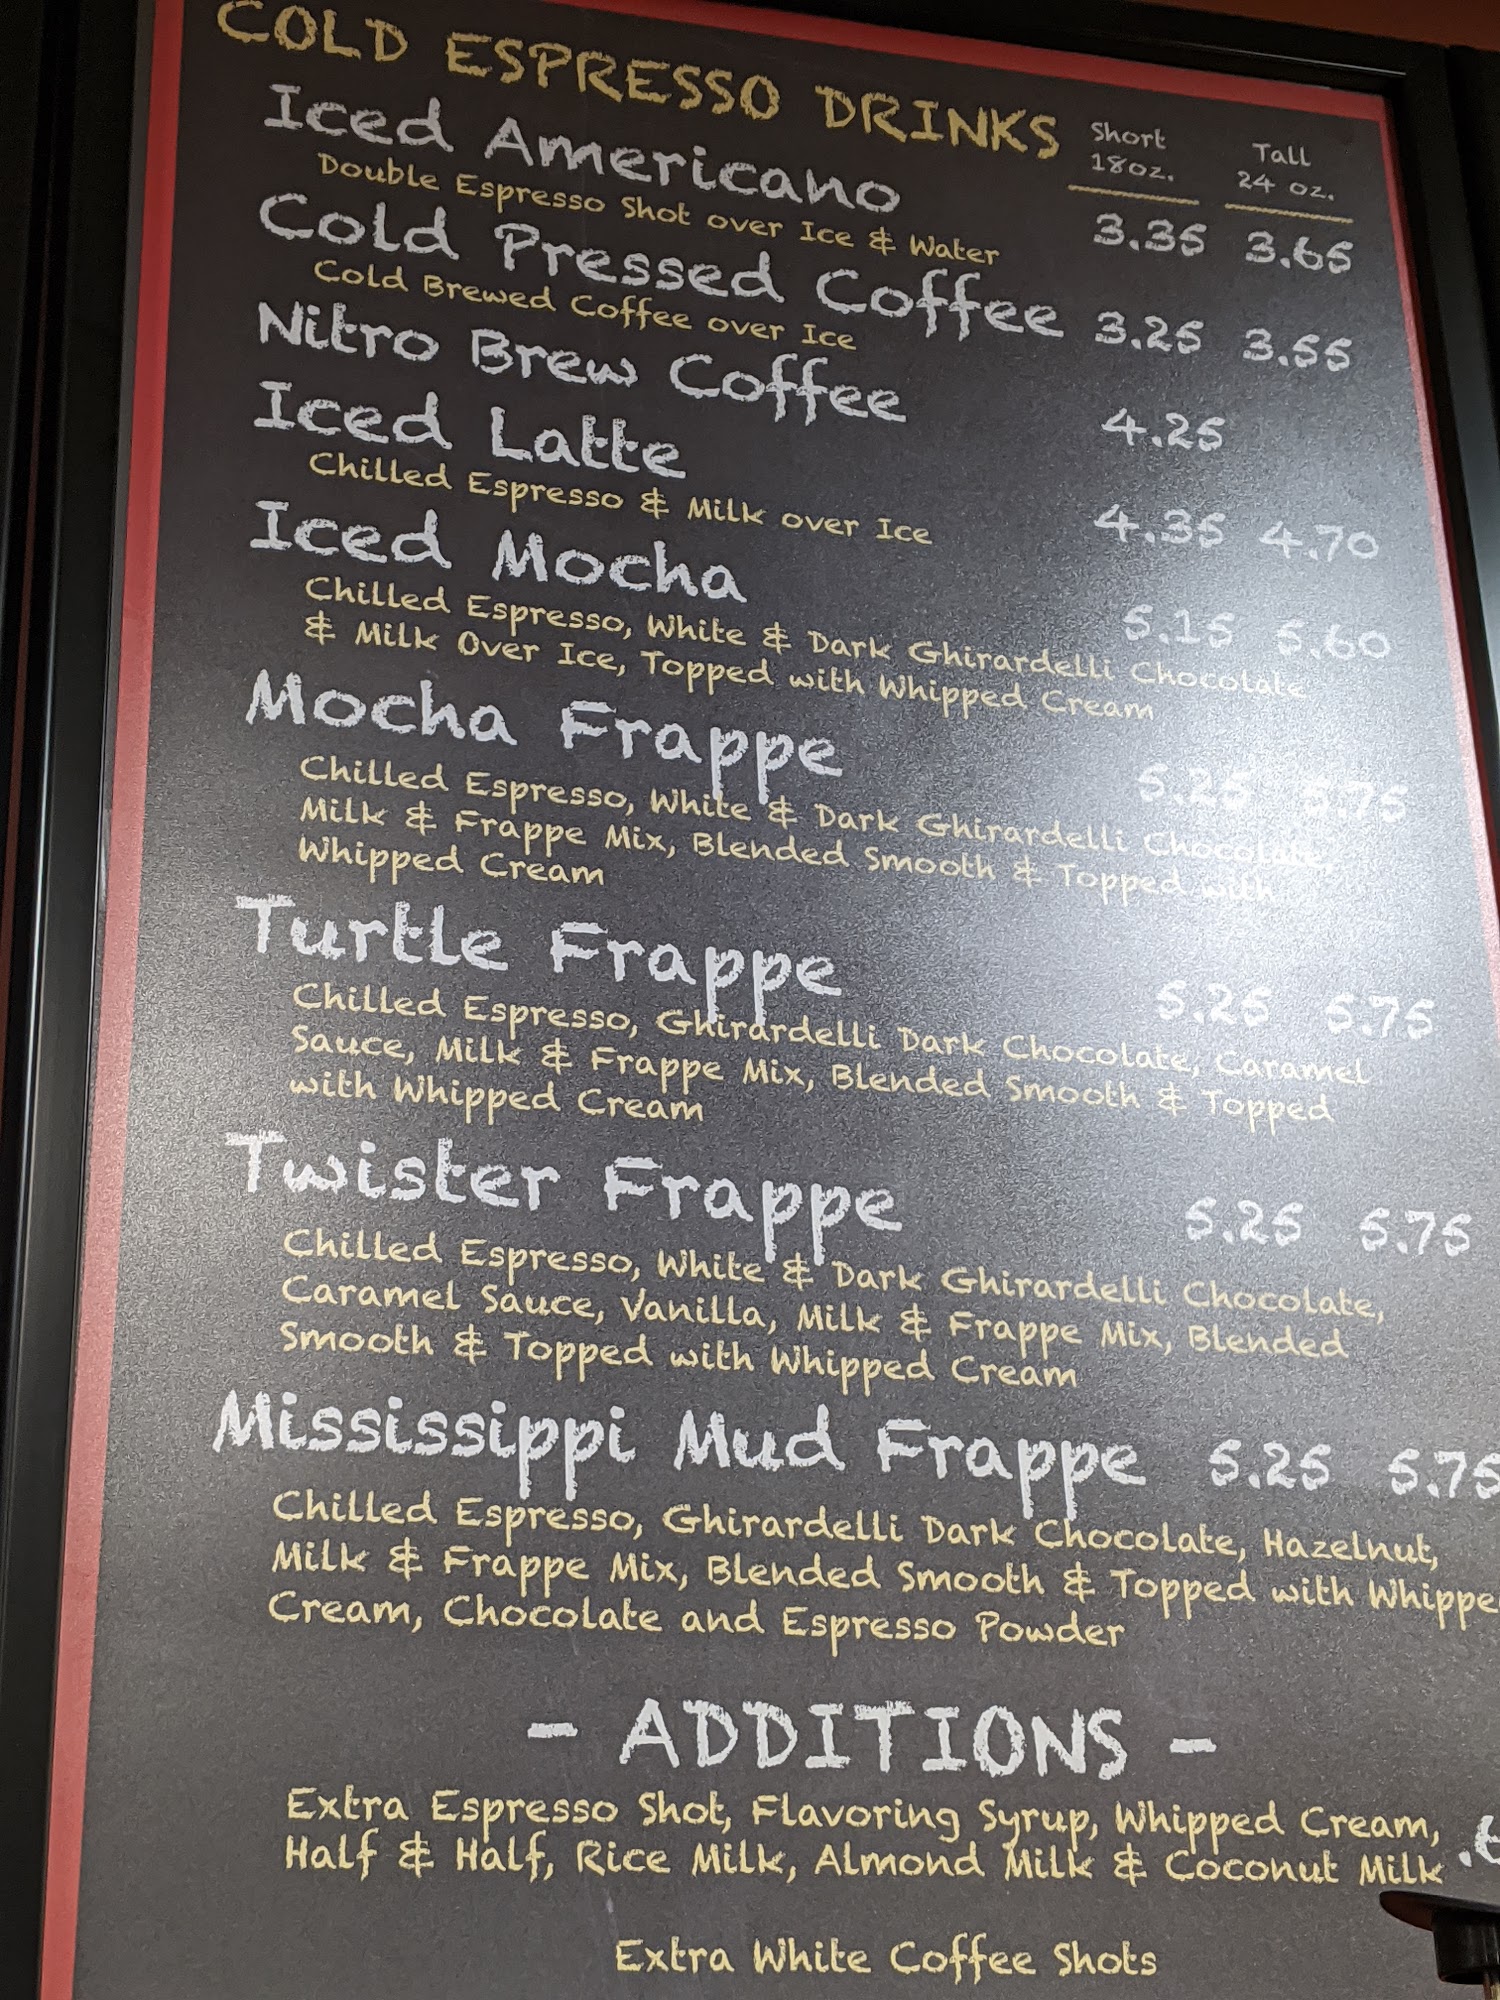 COLD ESPRESSO DRINKS
Short Tall
18oz. 24 oz.
Iced Americano 3.35 3.65
Double Espresso Shot over Ice & Water
Cold Pressed Coffee 3.25 3.55
Cold Brewed Coffee over Ice
Nitro Brew Coffee 4.25
Iced Latte 4.35 4.70
Chilled Espresso & Milk over Ice
Iced Mocha 5.15 5.60
Chilled Espresso, White & Dark Ghirardelli Chocolate
& Milk Over Ice, Topped with Whipped Cream
Mocha Frappe 5.25 5.75
Chilled Espresso, White & Dark Ghirardelli Chocolate,
Milk & Frappe Mix, Blended Smooth & Topped with
Whipped Cream
Turtle Frappe 5.25 5.75
Chilled Espresso, Ghirardelli Dark Chocolate, Caramel
Sauce, Milk & Frappe Mix, Blended Smooth & Topped
with Whipped Cream
Twister Frappe 5.25 5.75
Chilled Espresso, White & Dark Ghirardelli Chocolate,
Caramel Sauce, Vanilla, Milk & Frappe Mix, Blended
Smooth & Topped with Whipped Cream
Mississippi Mud Frappe 5.25 5.75
Chilled Espresso, Ghirardelli Dark Chocolate, Hazelnut,
Milk & Frappe Mix, Blended Smooth & Topped with Whippe
Cream, Chocolate and Espresso Powder
- ADDITIONS -
Extra Espresso Shot, Flavoring Syrup, Whipped Cream,
Half & Half, Rice Milk, Almond Milk & Coconut Milk
Extra White Coffee Shots